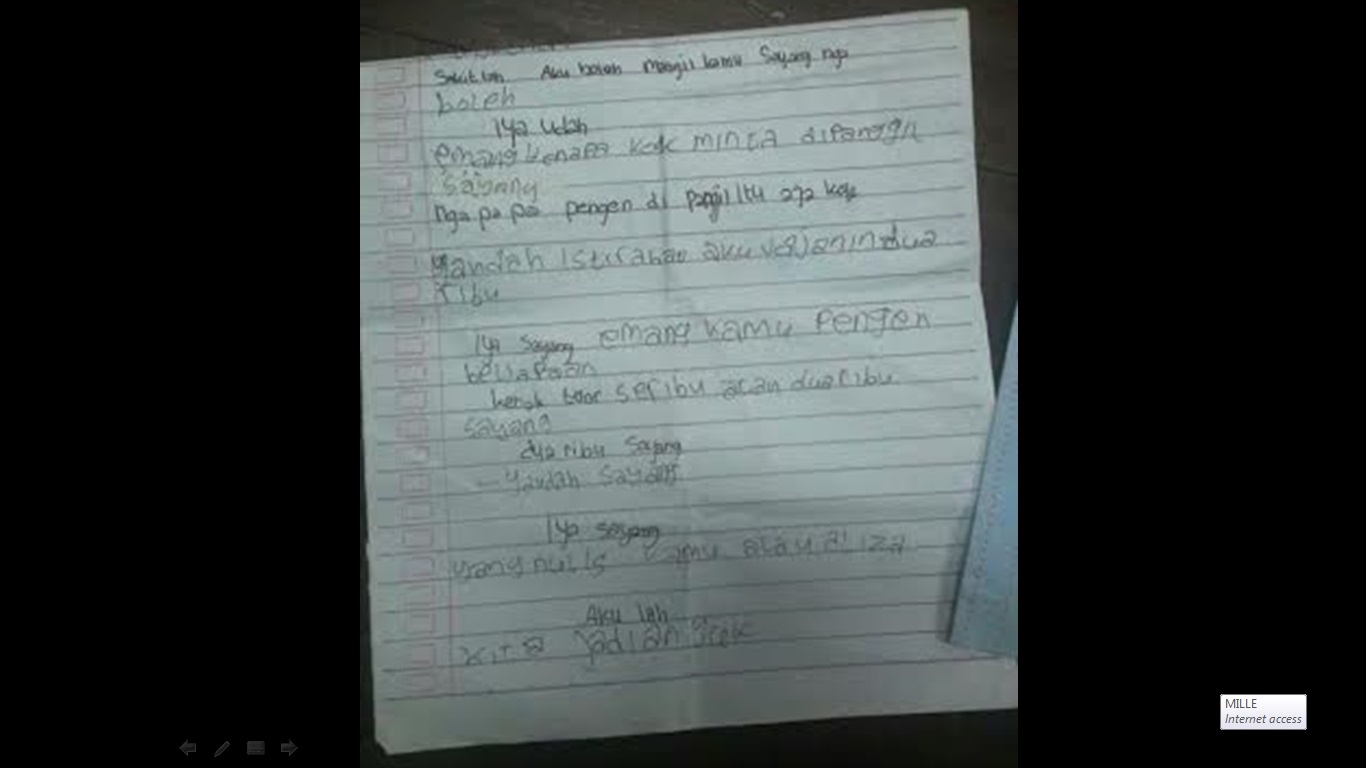 Aku boleh mangil kamu Sayang nga
boleh
Iya udah
emang kenapa kok minta dipanggil
sayang
nga pa pa pengen di pangil itu aja kok
yaudah isturahat aku
ribu
Iya sayang emang kamu Pengen
beliapaan
seribu duaribu
sayang
dua ribu Sayang
yaudah sayang
Iya sayang
yang nulis kamu atau
Aku lah
kita jadian
MILLE
Internet access